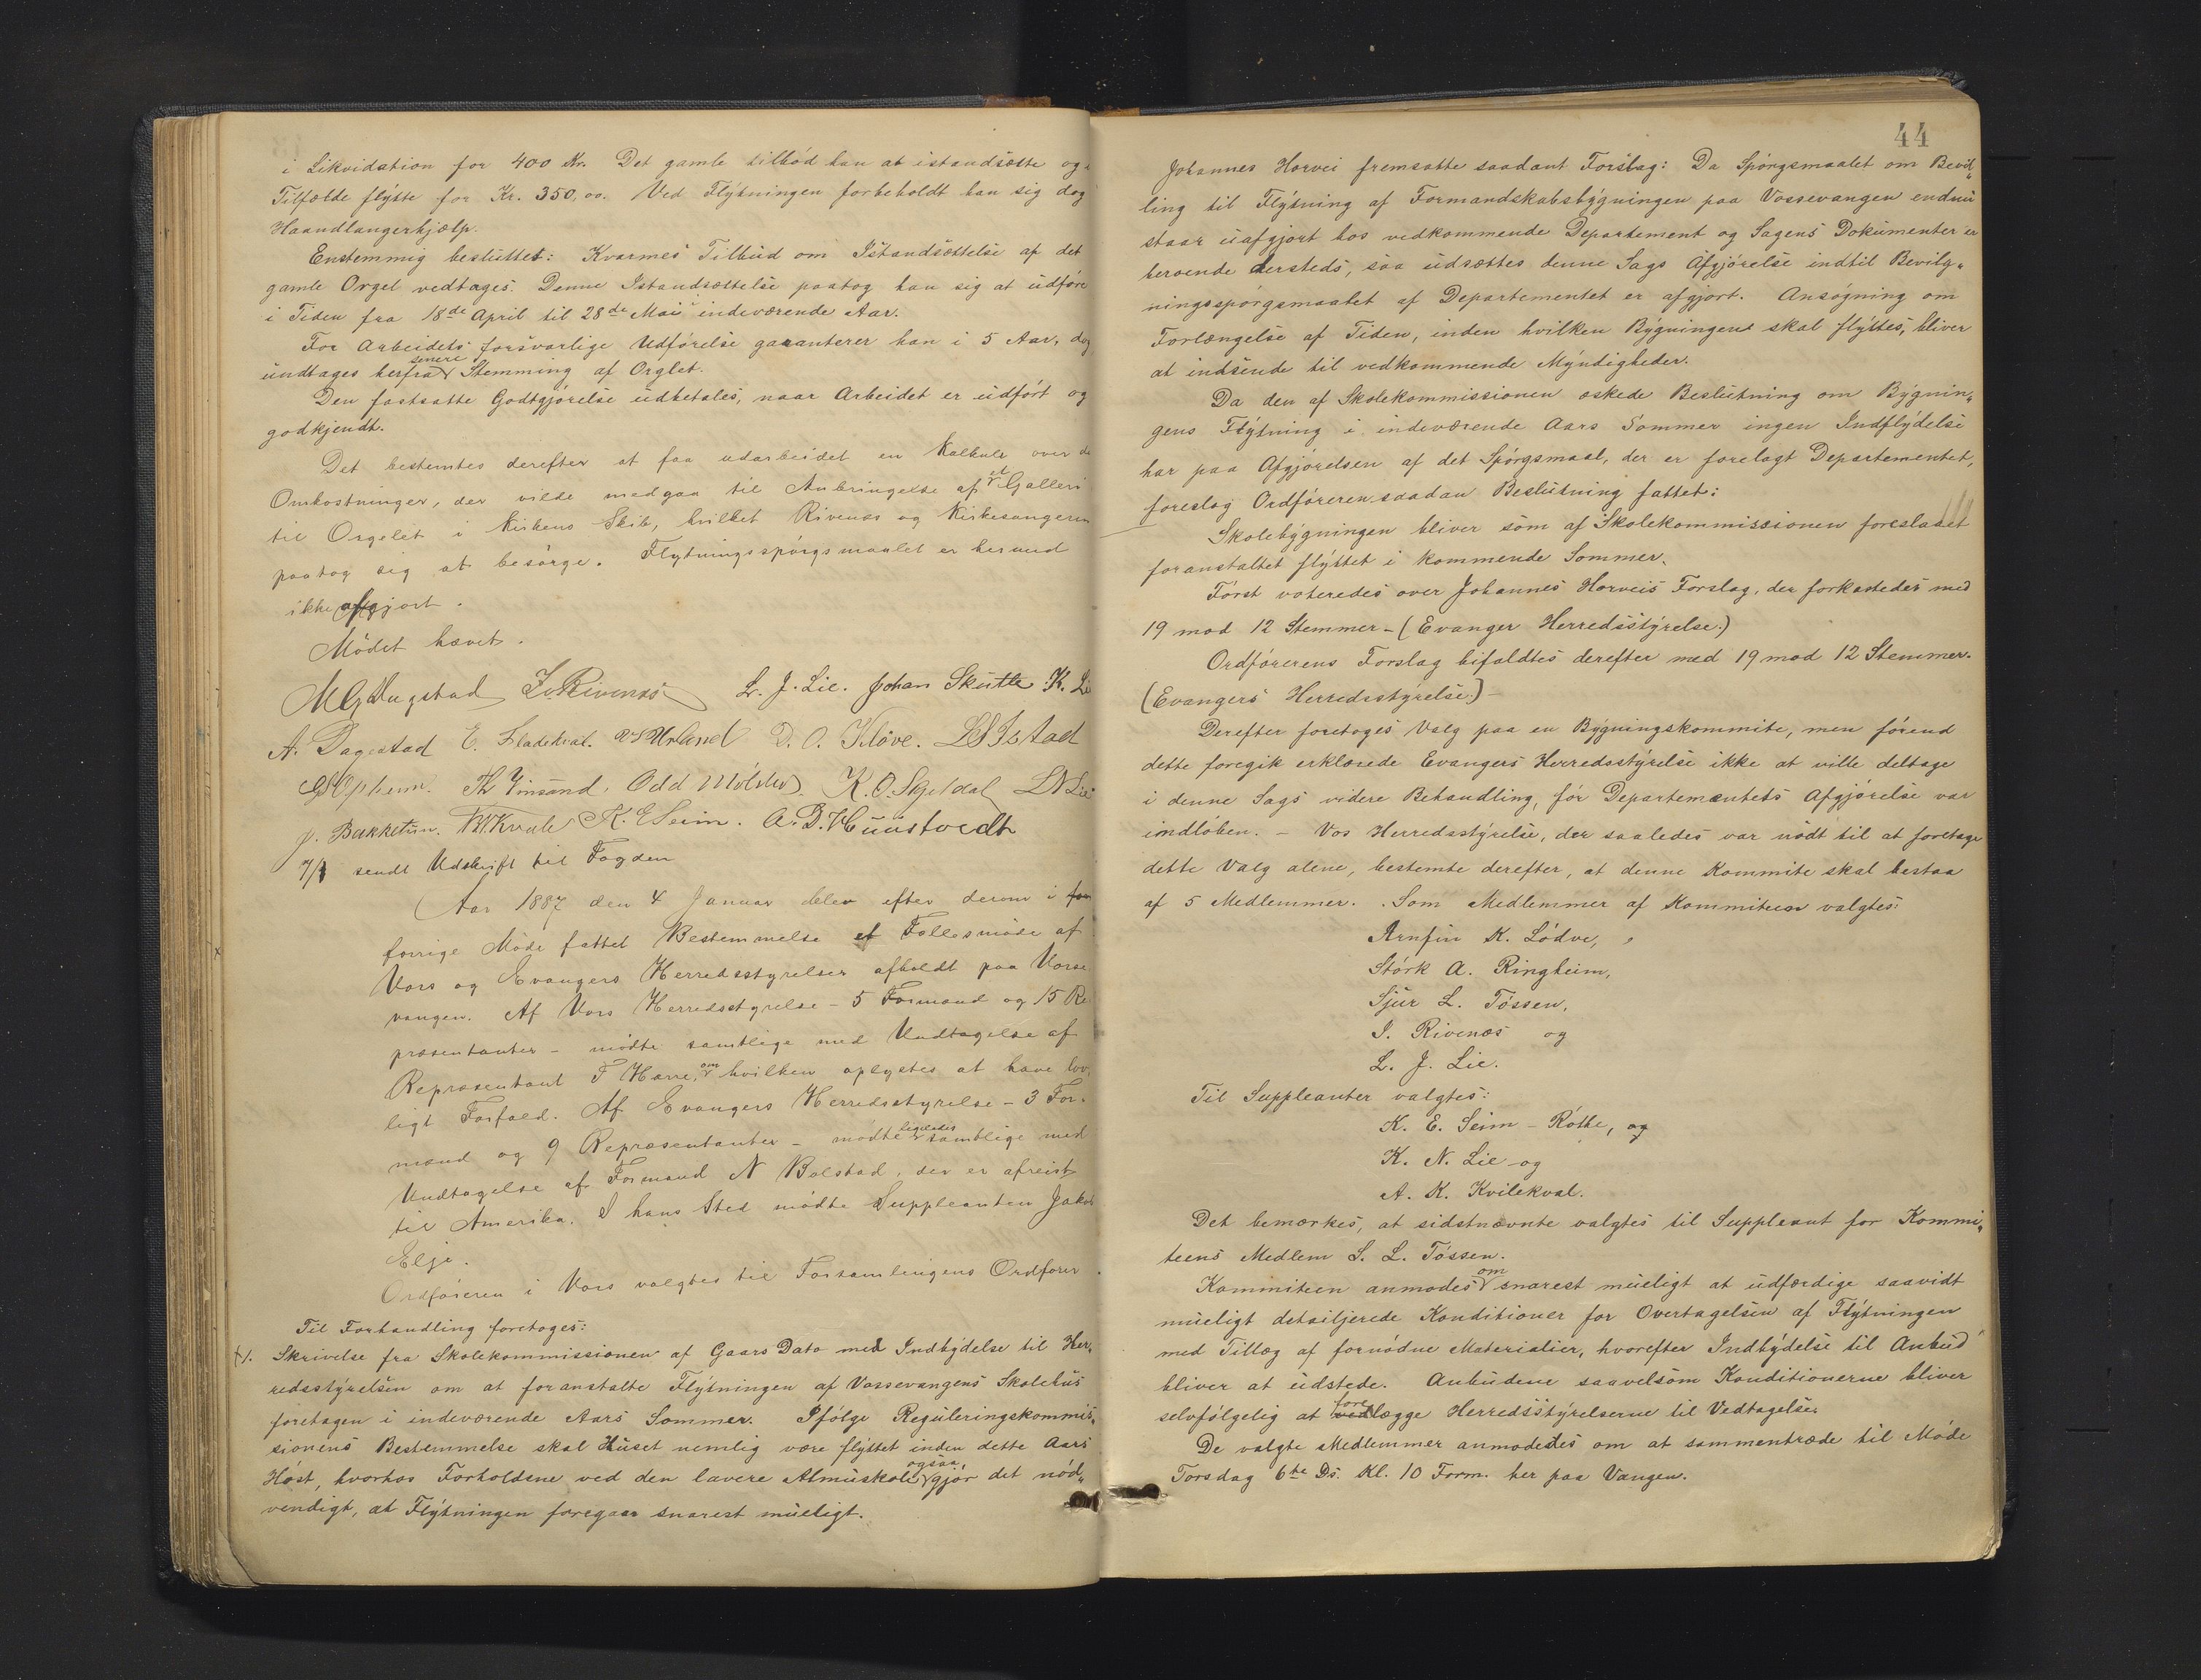 i Likvidation for 400 Kr. Det gamle tilbød han at istandsætte og i
Tilfælde flytte for Kr. 350,00. Ved Flytningen forbeholdt han sig dog
Haandlangerhjælp.
Enstemmig besluttet: Kvarmes Tilbud om Istandsættelse af det
gamle Orgel vedtages. Denne Istandsættelse paatog han sig at udføre
i Tiden fra 18de April til 28de Mai indeværende Aar.
For Arbeidets forsvarlige Udførelse garanterer han i 5 Aar, dog
undtages herfra senere Stemming af Orglet.
Den fastsatte Godtgjørelse udbetales, naar Arbeidet er udført og
godkjendt.
Det bestemtes derefter at faa udarbeidet en Kalkule over de
Omkostninger, der vilde medgaa til Anbringelse af et Galleri
til Orgelet i Kirkens Skib, hvilket Rivenæs og Kirkesangeren
paatog sig at besørge. Flytningsspørgsmaalet er hermed
ikke afgjort.
Mødet hævet.
M G Daugstad I. Rivenæs L. J. Lie. Johan Skutle K. Lie
A. Dagestad E. Fladekval. Urland D. O. Kløve. Istad
Opheim. Th Vinsand. Odd Mölster. K. O. Skjeldal L N Lie
J. Bakketun. Kvale K. E Seim. A. B. Hunstvedt
7/1 sendt Udskrift til Fogden
Aar 1887 den 4 Januar blev efter derom i for
forrige Møde fattet Bestemmelse et Fællesmøde af
Vors og Evangers Herredsstyrelser afholdt paa Vorse
vangen. Af Vors Herredsstyrelse - 5 Formænd og 15 Re
præsentanter - mødte samtlige med Undtagelse af
Repræsentant T Hærre, om hvilken oplystes at have lov,
ligt Forfald. Af Evangers Herredsstyrelse - 3 For-
mænd og 9 Repræsentanter - mødte ligeledes samtlige med
Undtagelse af Formand N Bolstad, der er afreist
til Amerika. I hans Sted mødte Suppleanten Jakob
Elje.
Ordføreren i Vors valgtes til Forsamlingens Ordfører.
Til Forhandling foretoges:
1. Skrivelse fra Skolekommissionen af Gaars Dato med Indbydelse til Her„
redsstyrelsen om at foranstalte Flytningen af Vossevangens Skolehus
foretagen i indeværende Aars Sommer. Ifølge Reguleringskommis„
sionens Bestemmelse skal Huset nemlig være flyttet inden dette Aars
Høst, hvorhos Forholdene ved den lavere Almuskole ogsaa, gjør det nød„
vendigt, at Flytningen foregaar snarest mueligt.
44
Johannes Horvei fremsatte saadant Forslag: Da Spørgsmaalet om Bevil„
ling til Flytning af Formandskabsbygningen paa Vossevangen endnu
staar uafgjort hos vedkommende Departement og Sagens Dokumenter er
beroende dersteds, saa udsættes denne Sags Afgjørelse indtil Bevilg„
ningsspørgsmaalet af Departementet er afgjort. Ansøgning om
Forlængelse af Tiden, inden hvilken Bygningens skal flyttes, bliver
at indsende til vedkommende Myndigheder.
Da den af Skolekommissionen æskede Beslutning om Bygnin„
gens Flytning i indeværende Aars Sommer ingen Indflydelse
har paa Afgjørelsen af det Spørgsmaal, der er forelagt Departementet,
foreslog Ordføreren saadan Beslutning fattet:
Skolebygningen bliver som af Skolekommissionen foreslaaet
foranstaltet flyttet i kommende Sommer.
Først voteredes over Johannes Horveis Forslag, der forkastedes med
19 mod 12 Stemmer - (Evanger Herredsstyrelse.)
Ordførerens Forslag bifaldtes derefter med 19 mod 12 Stemmer.
(Evangers Herredsstyrelse.) -
Derefter foretoges Valg paa en Bygningskommite, men førend
dette foregik erklærede Evangers Herredsstyrelse ikke at ville deltage
i denne Sags videre Behandling, før Departementets Afgjørelse var
indløben. - Vos Herredsstyrelse, der saaledes var nødt til at foretage
dette Valg alene, bestemte derefter, at denne Kommite skal bestaa
af 5 Medlemmer. Som Medlemmer af Kommiteen valgtes:
Arnfin K. Lødve,
Størk A. Ringheim,
Sjur L. Tøssen,
I. Rivenæs og
L. J. Lie.
Til Suppleanter valgtes:
K. E. Seim - Røthe, og
K. N. Lie og
A. K. Kvilekval.
Det bemærkes, at sidstnævnte valgtes til Suppleant for Kommi„
teens Medlem S. L. Tøssen.
Kommiteen anmodes om snarest mueligt at udfærdige saavidt
mueligt detailjerede Konditioner for Overtagelsen af Flytningen
med Tillæg af fornødne Materialier, hvorefter Indbydelse til Anbud
bliver at udstede. Anbudene saavelsom Konditionerne bliver
selvfølgelig at forelægge Herredsstyrelserne til Vedtagelse.
De valgte Medlemmer anmodedes om at sammentræde til Møde
Torsdag 6te Ds. Kl. 10 Form. her paa Vangen.